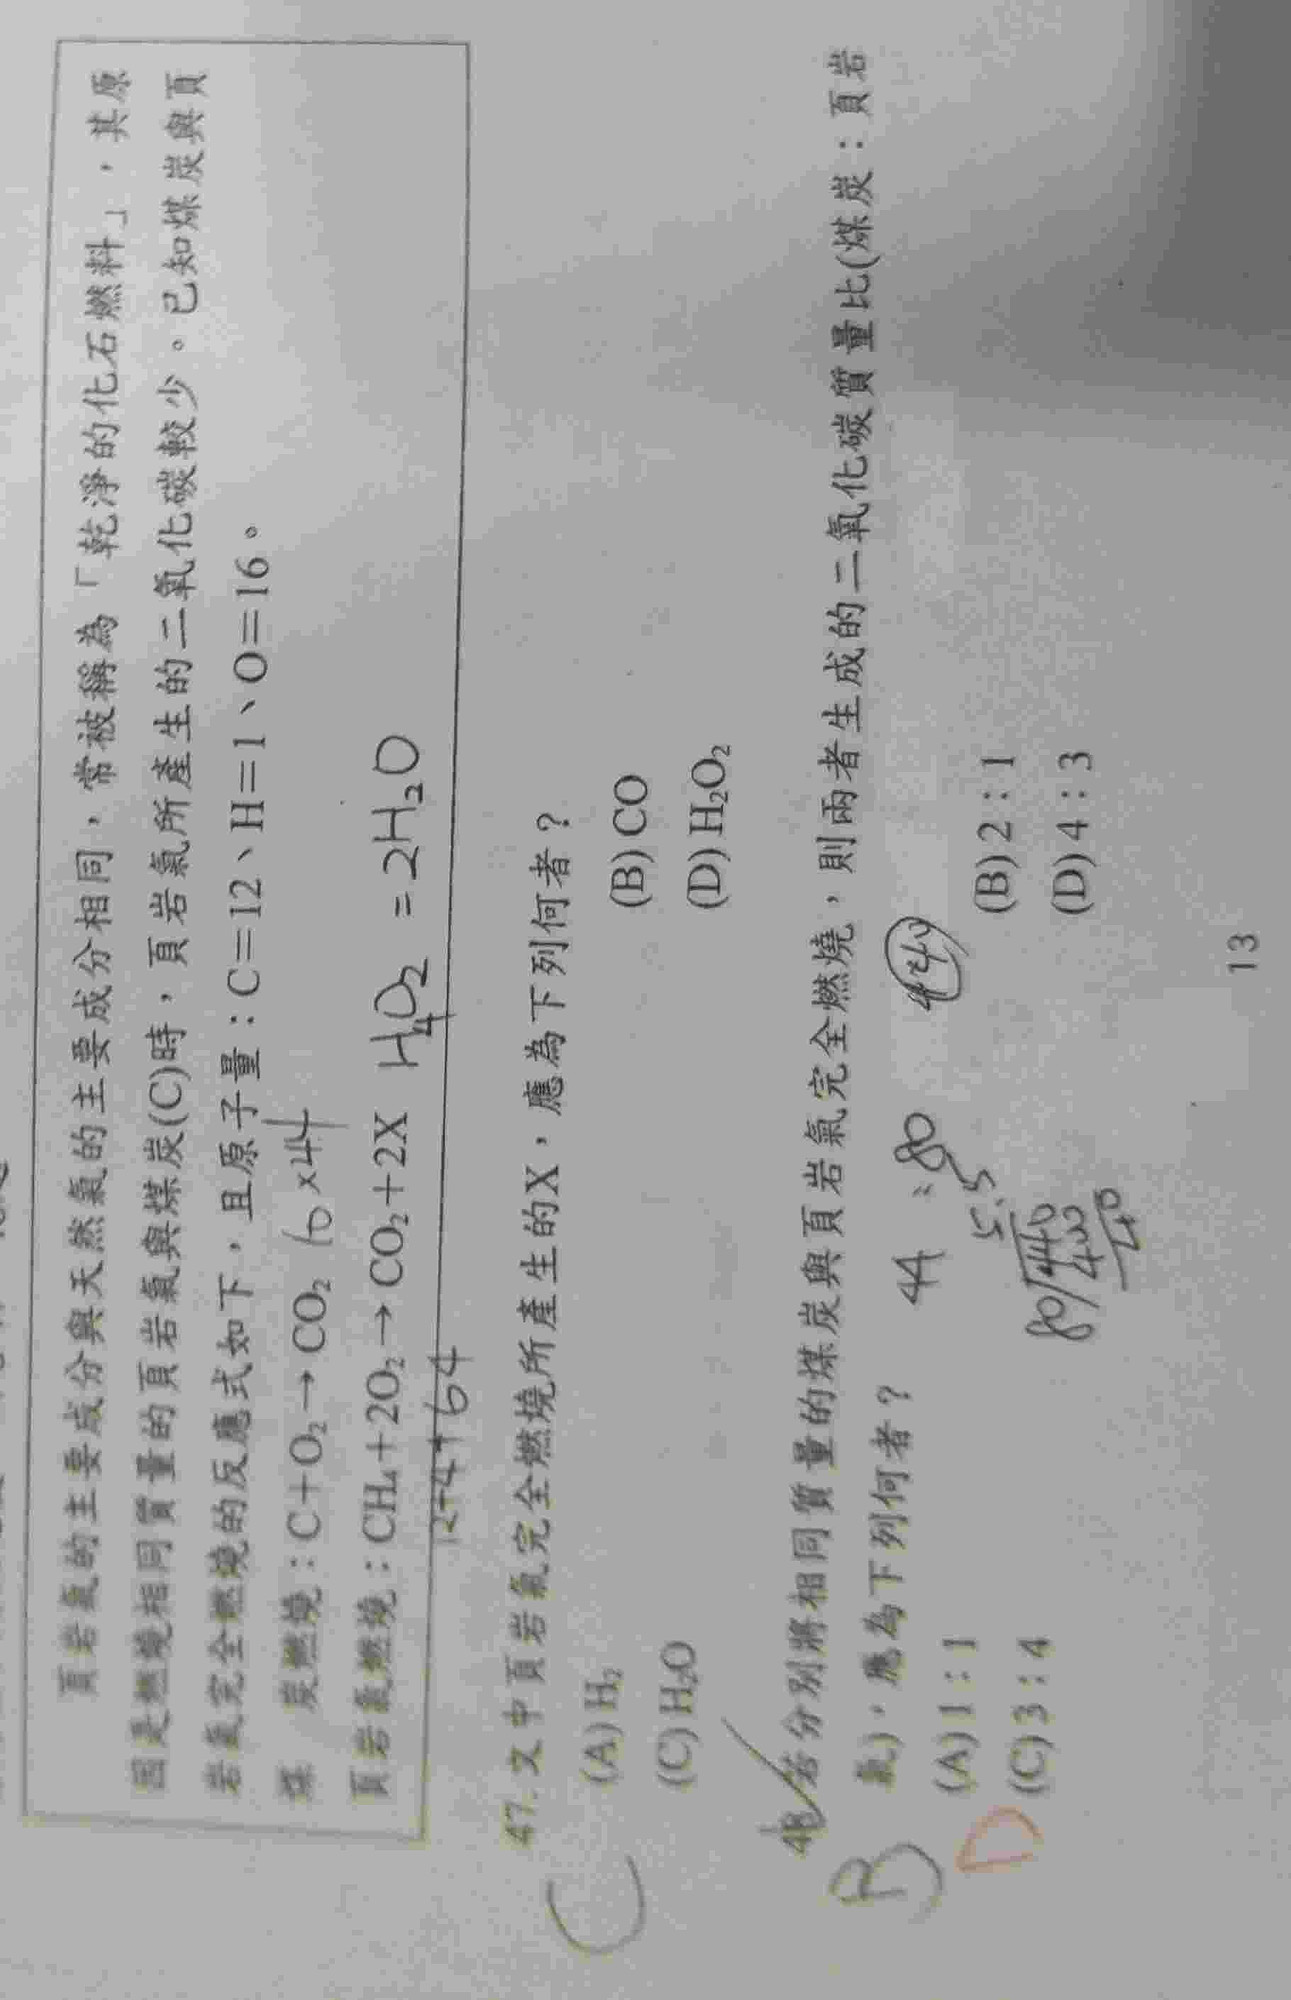 頁岩氣的主要成分與天然氣的主要成分相同，常被稱為「乾淨的化石燃料」，其原
因是燃燒相同質量的頁岩氣與煤炭(C)時，頁岩氣所產生的二氧化碳較少。已知煤炭與頁
岩氣完全燃燒的反應式如下，且原子量：C＝12、H＝1、O＝16。
煤　炭燃燒：C＋O₂→CO₂ ×44
頁岩氣燃燒：CH₄＋2O₂→CO₂＋2X H₄O₂ =2H₂O
12+4+64
47. 文中頁岩氣完全燃燒所產生的X，應為下列何者？
(A) H₂ (B) CO
(C) H₂O (D) H₂O₂
C
48. 若分別將相同質量的煤炭與頁岩氣完全燃燒，則兩者生成的二氧化碳質量比(煤炭：頁岩
氣)，應為下列何者？ 44 : 80 440
(A) 1：1 (B) 2：1
(C) 3：4 (D) 4：3
B
D
5.5
80/440
400
40
13